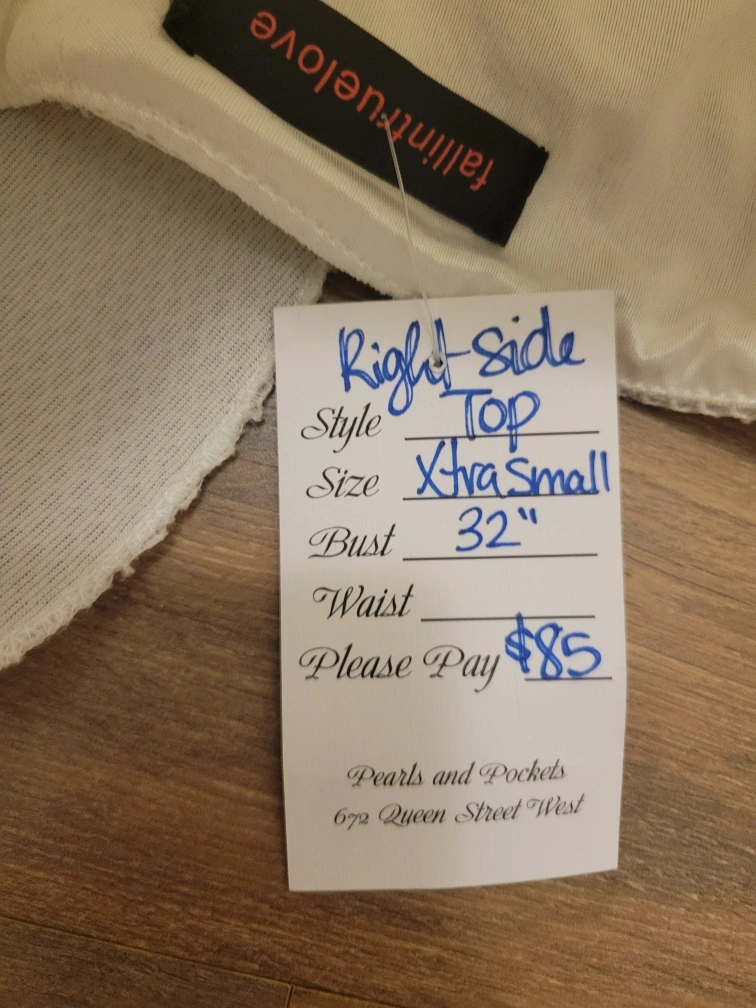 fallintruelove
Right Side
Style Top
Size Xtra Small
Bust 32"
Waist
Please Pay $85
Pearls and Pockets
672 Queen Street West